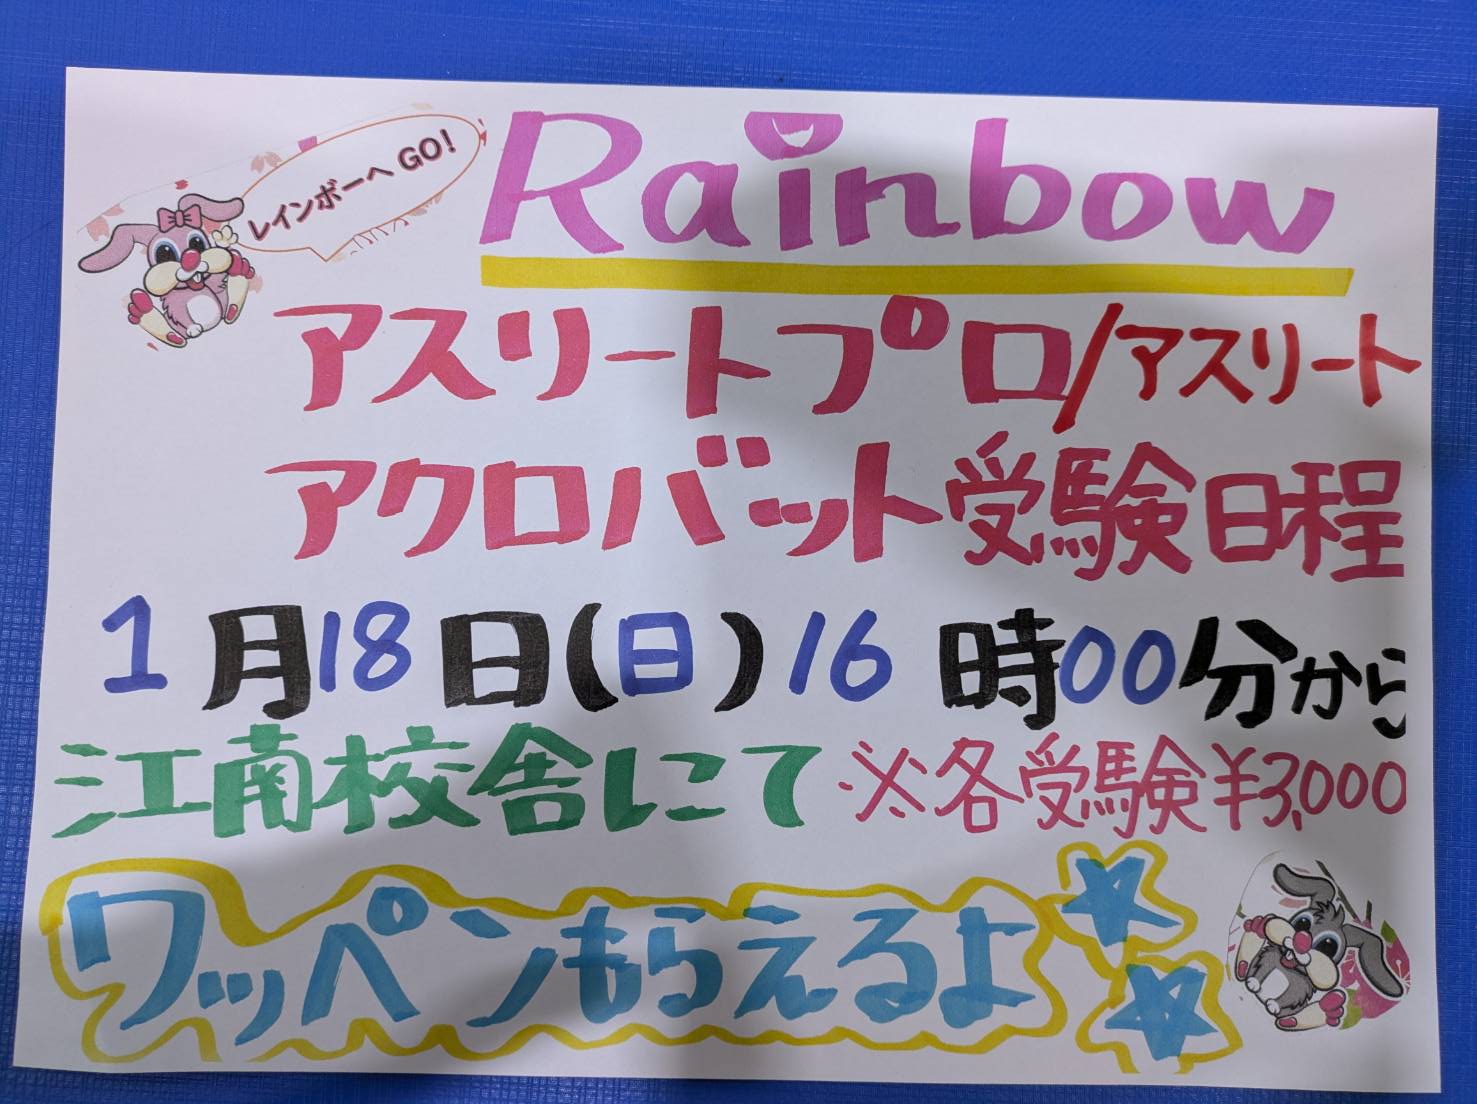 レインボーへGO!
Rainbow
アスリートプロ/アスリート
アクロバット受験日程
1月18日(日)16時00分から
江南校舎にて ※各受験¥3,000
ワッペンもらえるよ